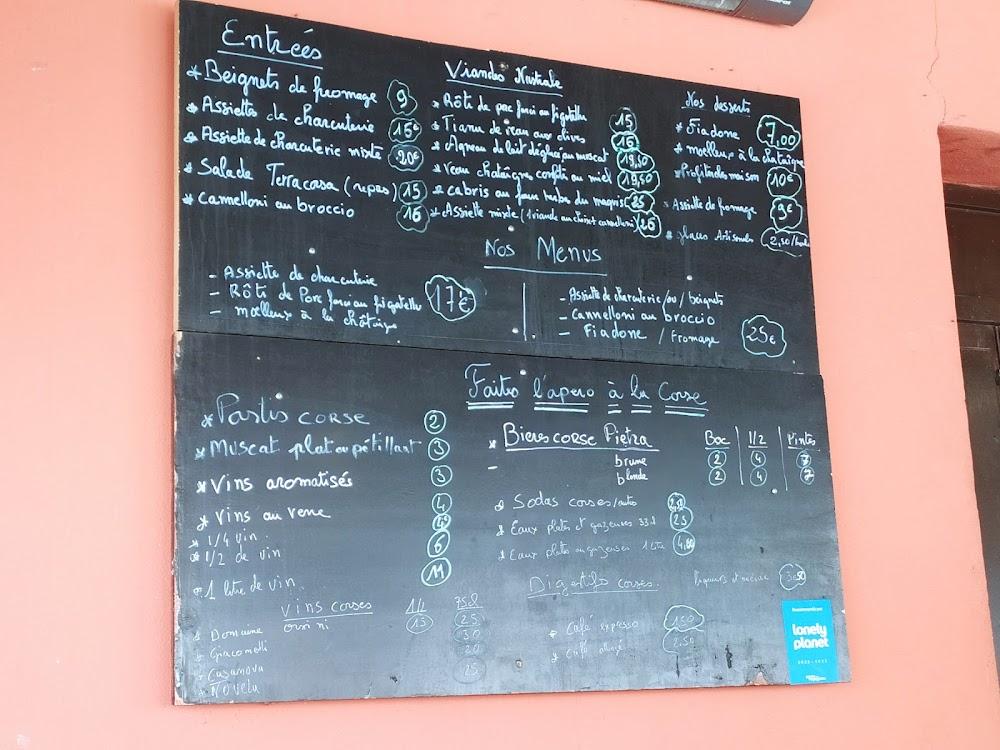 Entrées
* Beignets de fromage 9
* Assiette de charcuterie 15€
* Assiette de charcuterie mixte 20€
* Salade Terracorsa (repas) 15
* Cannelloni au broccio 16
Viandes Nustrale
* Rôti de porc farci au figatellu 15
* Tianu de veau aux olives 16
* Agneau de lait déglacé au muscat 19,50
* Veau chataigne confite au miel 19,50
* cabris au faux herbe du maquis 25
* Assiette mixte (1 viande au choix et cannelloni) 26
Nos desserts
* Fiadone 7,00
* moelleux à la chataigne
* Profiteroles maison 10€
* Assiette de fromage 9€
* glaces Artisanales 2,50/boule
Nos Menus
- Assiette de charcuterie
- Rôti de Porc farci au figatellu 17€
- moelleux à la châtaigne
- Assiette de charcuterie /ou/ beignets
- Cannelloni au broccio
- Fiadone / Fromage 25€
Faites l'apero à la Corse
* Pastis corse 2
* Muscat plat ou pétillant 3
* Vins aromatisés 3
* Vins au verre 4
* 1/4 vin
* 1/2 de vin 6
* 1 litre de vin 11
* Bieres corse Pietra Boc 1/2 Pintes
- brune 2 4 7
blonde 2 4 7
* Sodas corses/autres
* Eaux plates et gazeuses 33cl
* Eaux plates ou gazeuses 1 litre
Digestifs corses.
* Café expresso 1,50
* Café allongé 2,50
Vins corses 1/2 75cl
* Domaine orsini 15 25
* Giacomelli 30
* Casanova 20
* Novella 25
lonely planet